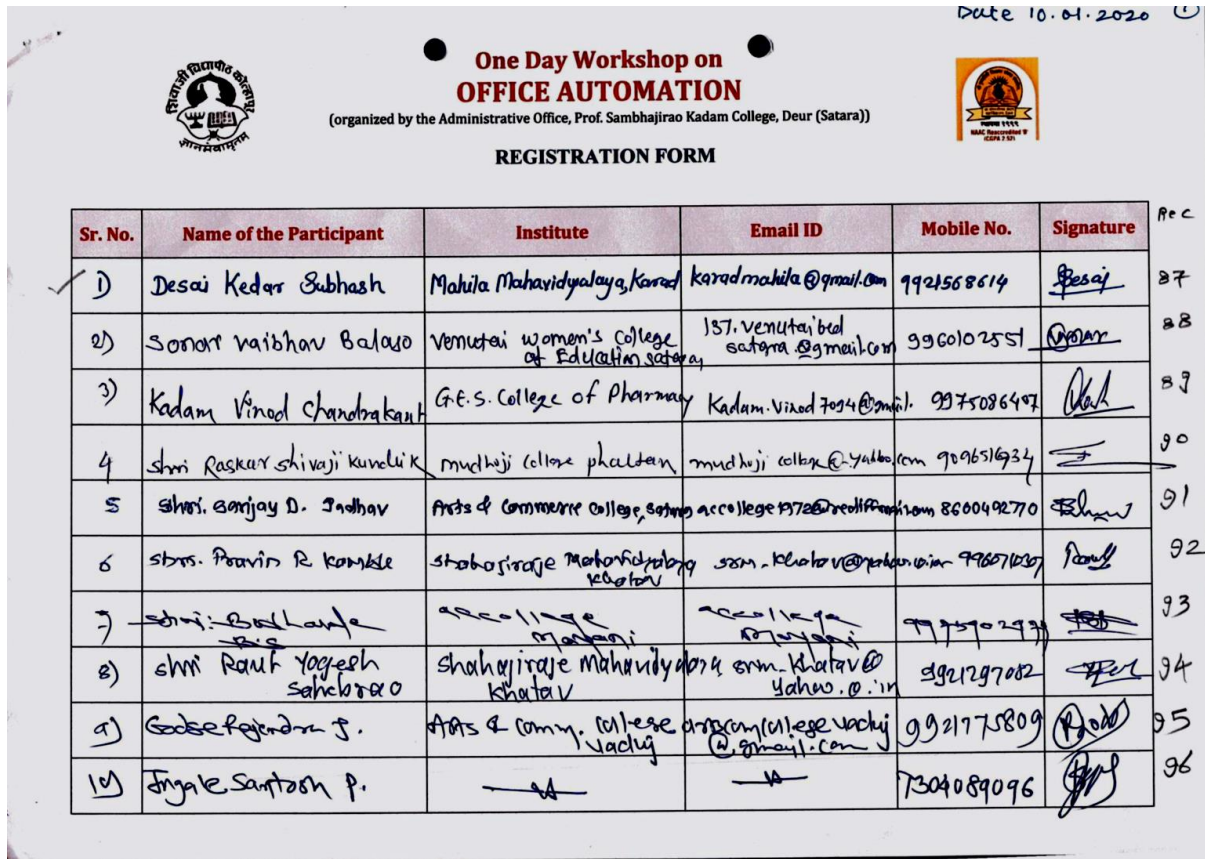 Date 10.01.2020 1
शिवाजी विद्यापीठ कोल्हापूर
ज्ञानमेवामृतम्
One Day Workshop on
OFFICE AUTOMATION
(organized by the Administrative Office, Prof. Sambhajirao Kadam College, Deur (Satara))
NAAC Reaccredited 'B'
(CGPA 2.52)
REGISTRATION FORM
Sr. No. Name of the Participant Institute Email ID Mobile No. Signature Rec
1) Desai Kedar Subhash Mahila Mahavidyalaya, Karad karadmahila@gmail.com 9921568614 87
2) Sonar Vaibhav Balaso Venutai women's college of Education satara, 137.venutaibed satara.@gmail.com 9960102551 88
3) Kadam Vinod Chandrakant G.E.S. College of Pharmacy Kadam.vinod7094@gmail. 9975086497 89
4 shri Raskar shivaji kundlik mudhoji college phaltan mudhoji college@yahoo.com 9096516934 90
5 Shri. Sanjay D. Jadhav Arts & Commerce college, satara accollege1972@rediffmail.com 8600492770 91
6 shri. Pravin R Kamble Shahajiraje Mahavidyalaya Khatav srm-khatav@yahoo.co.in 92
7) accollege mayani accollege mayani 93
8) shri Raut Yogesh sahebrao Shahajiraje Mahavidyalaya, Khatav srm-khatav@ Yahoo.o.in 9921297082 94
9) Godse Rajendra J. Arts & Comm. College Vaduj artscomcollegevaduj @gmail.com 9921775809 95
10) Ingale Santosh P. —॥— —॥— 7304089096 96